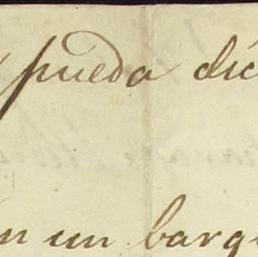 pueda dic
n un barq